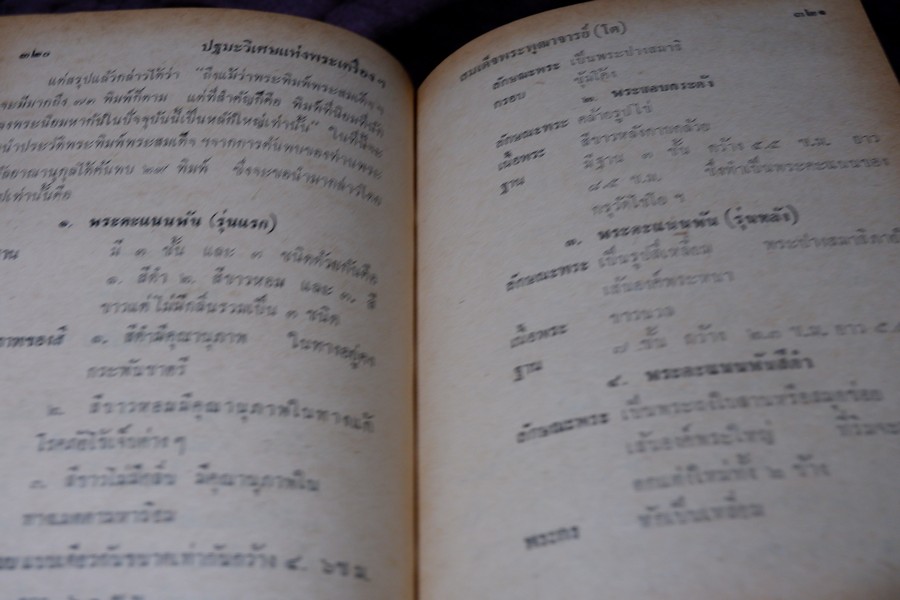 ๓๒๐ ปฐมะวิเศษแห่งพระเครื่อง ๆ
แต่สรุปแล้วกล่าวได้ว่า "ถึงแม้ว่าพระพิมพ์พระสมเด็จฯ
จะมีมากถึง ๗๓ พิมพ์ก็ตาม แต่ที่สำคัญก็คือ พิมพ์ที่นิยม
ปัจจุบันนี้เป็นหลักใหญ่เท่านั้น" ในที่นี้จะ
นำประวัติพระพิมพ์พระสมเด็จ ฯจากการค้นพบของท่านพระ
ได้ค้นพบ ๒๙ พิมพ์ ซึ่งจะขอนำมากล่าวโดย
ปเท่านั้นคือ
๑. พระคะแนนพัน (รุ่นแรก)
ฐาน มี ๓ ชั้น และ ๓ ชนิดด้วยกันคือ
๑. สีดำ ๒. สีขาวหอม และ ๓. สี
ขาวแต่ไม่มีกลิ่นรวมเป็น ๓ ชนิด
ภาพของสี ๑. สีดำมีคุณานุภาพ ในทางอยู่คง
กระพันชาตรี
๒. สีขาวหอมมีคุณานุภาพในทางแก้
โรคภัยไข้เจ็บต่าง ๆ
๓. สีขาวไม่มีกลิ่น มีคุณานุภาพใน
ทางเมตตามหานิยม
แบบเดียวกันขนาดเท่ากันกว้าง ๔. ๖ซ.ม.
สมเด็จพระพุฒาจารย์ (โต) ๓๒๑
ลักษณะพระ เป็นพระปางสมาธิ
กรอบ ซุ้มโค้ง
๒. พระขอบกระด้ง
ลักษณะพระ คล้ายรูปไข่
เนื้อพระ สีขาวหลังกาบกล้วย
ฐาน มีฐาน ๓ ชั้น กว้าง ๕.๕ ซ.ม. ยาว
๘.๕ ซ.ม. ซึ่งทำเป็นพระคะแนนของ
กรุวัดไชโย ฯ
๓. พระคะแนนพัน (รุ่นหลัง)
ลักษณะพระ เป็นรูปสี่เหลี่ยม พระปางสมาธิ
เส้นองค์พระหนา
เนื้อพระ ขาวนวล
ฐาน ๗ ชั้น กว้าง ๒.๓ ซ.ม. ยาว
๔. พระคะแนนพันสีดำ
ลักษณะพระ เป็นพระผงใบลานหรือสมอร่อย
เส้นองค์พระใหญ่ ที่ริมจะ
ตกแต่งใหม่ทั้ง ๒ ข้าง
พระกร หักเป็นเหลี่ยม